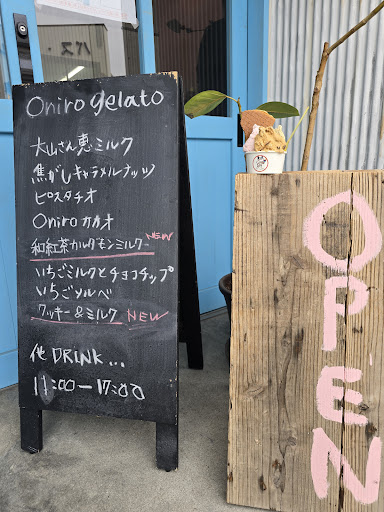 Oniro gelato
大山さん恵ミルク
焦がしキャラメルナッツ
ピスタチオ
Oniro カカオ
和紅茶カルダモンミルク NEW
いちごミルクとチョコチップ
いちごソルベ
クッキー&ミルク NEW
他 DRINK...
11:00-17:00
OPEN